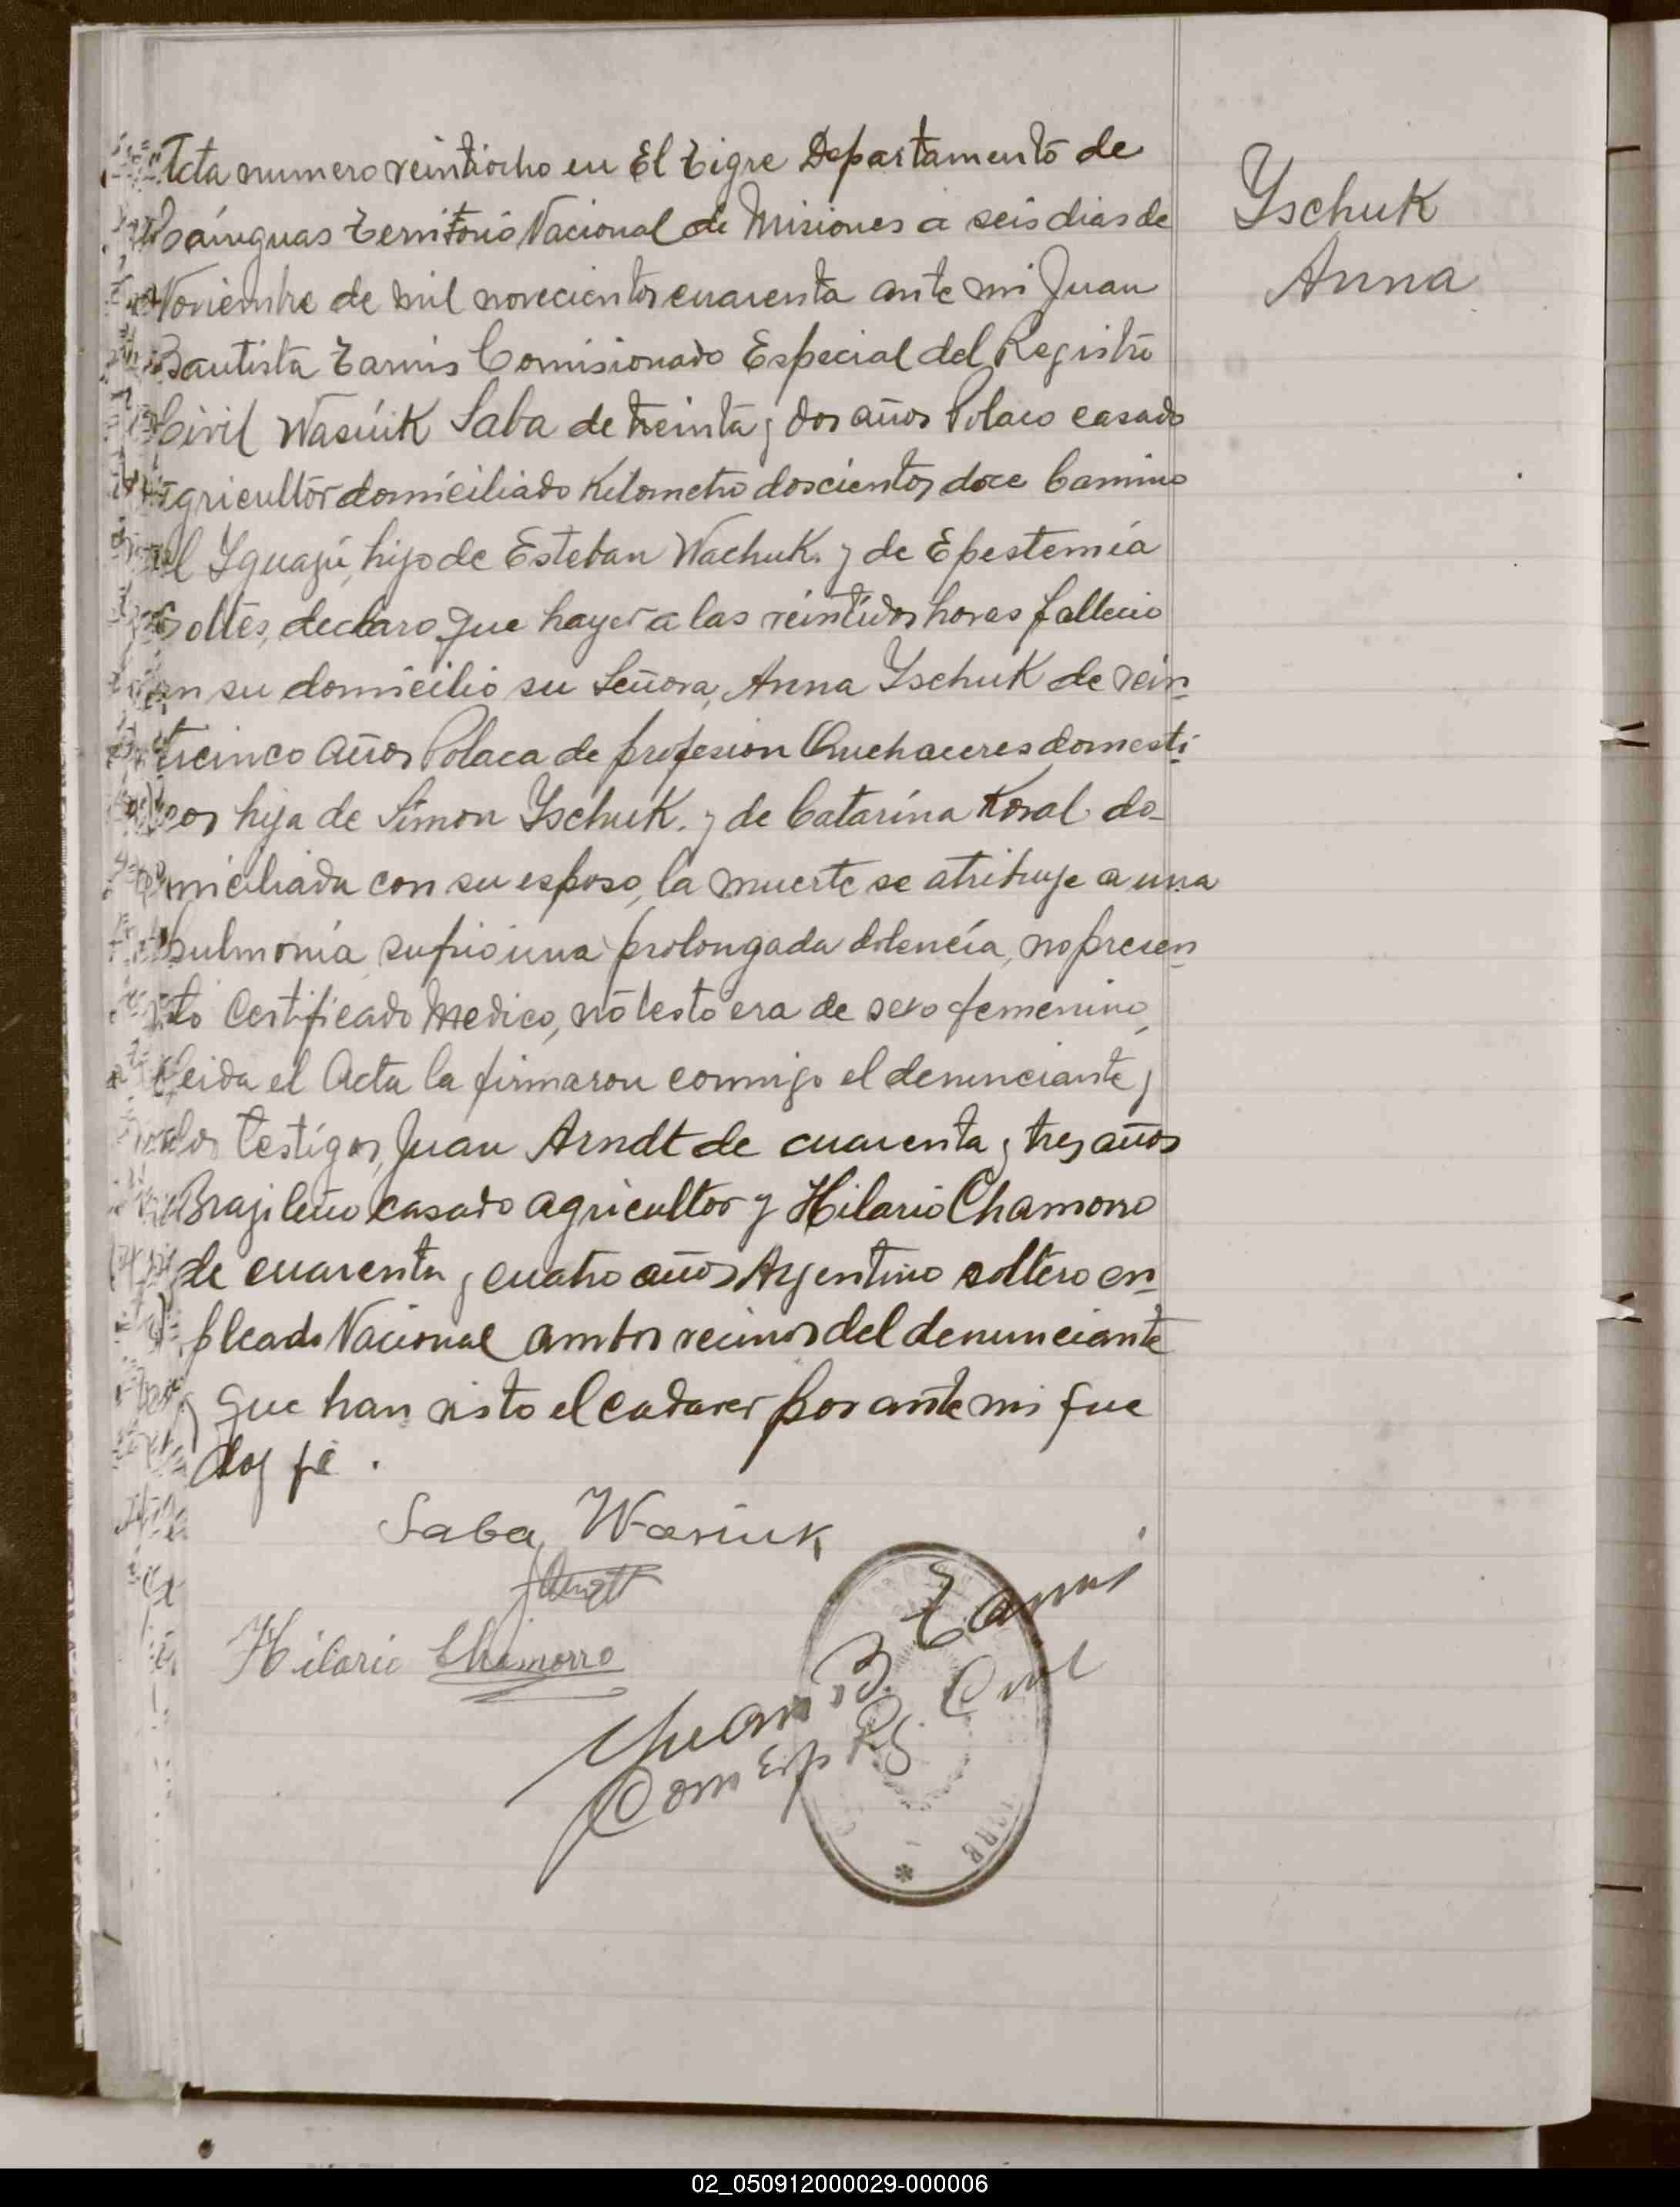 Acta numero veintiocho en El Tigre Departamento de
Cainguas Territorio Nacional de Misiones a seis dias de
Noviembre de mil novecientos cuarenta ante mi Juan
Bautista Tarnis Comisionado Especial del Registro
Civil Wasiuk Saba de treinta y dos años Polaco casado
Agricultor domiciliado Kilometro doscientos doce Camino
al Yguazú, hijo de Esteban Wachuk. y de Epestemia
Soltes, declaro que hayer a las veintidos horas fallecio
en su domicilio su Señora, Anna Yschuk de vein-
ticinco años Polaca de profesion Quehaceres domesti-
cos hija de Simon Yschuk. y de Catarina Koval do-
miciliada con su esposo, la muerte se atribuye a una
pulmonia sufrio una prolongada dolencia, no presen-
to Certificado Medico, no testo era de sexo femenino,
Leida el Acta la firmaron conmigo el denunciante y
los testigos, Juan Arndt de cuarenta y tres años
Brazileño casado agricultor y Hilario Chamorro
de cuarenta y cuatro años Argentino soltero en-
pleado Nacional ambos vecinos del denunciante
y que han visto el cadaver por ante mi que
doy fé.
Saba Wasiuk
Hilario Chamorro
Juan B. Tarnis
Com Esp Rg. Civil
Yschuk
Anna
02_050912000029-000006